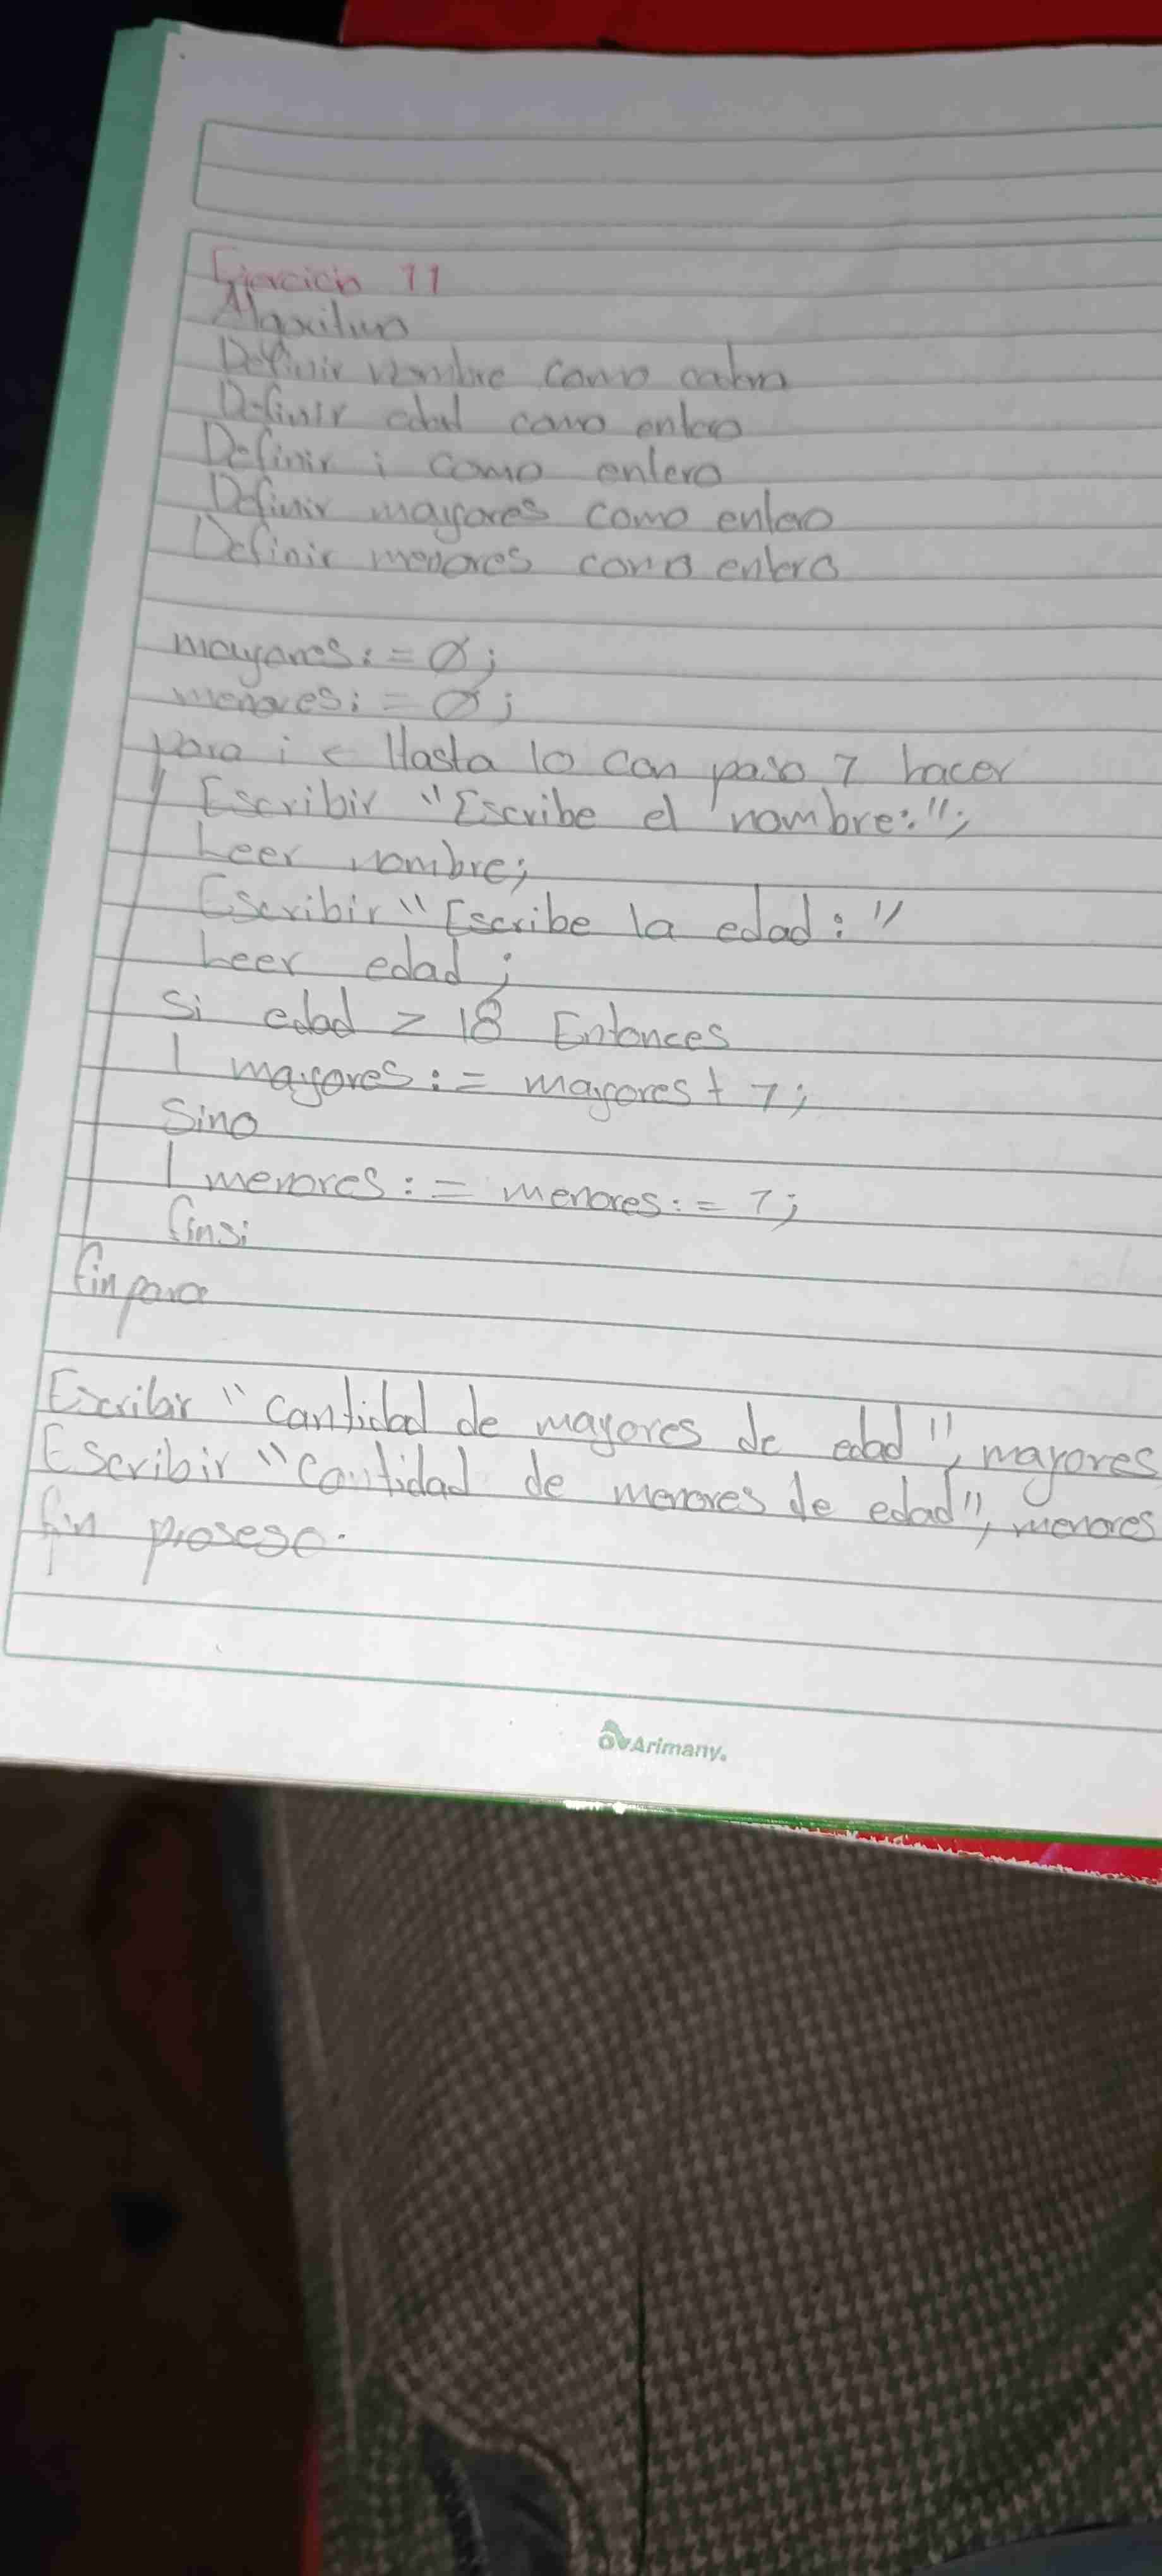 Ejercicio 11
Algoritmo
Definir nombre como
Definir edad como entero
Definir i como entero
Definir mayores como entero
Definir menores como entero
mayores := Ø;
menores := Ø;
para i < Hasta 10 con paso 1 hacer
Escribir "Escribe el nombre:";
Leer nombre;
Escribir "Escribe la edad:"
Leer edad;
Si edad > 18 Entonces
mayores := mayores + 1;
Sino
menores := menores := 1;
finsi
finpara
Escribir "cantidad de mayores de edad", mayores
Escribir "cantidad de menores de edad", menores
fin proseso.
Arimany.